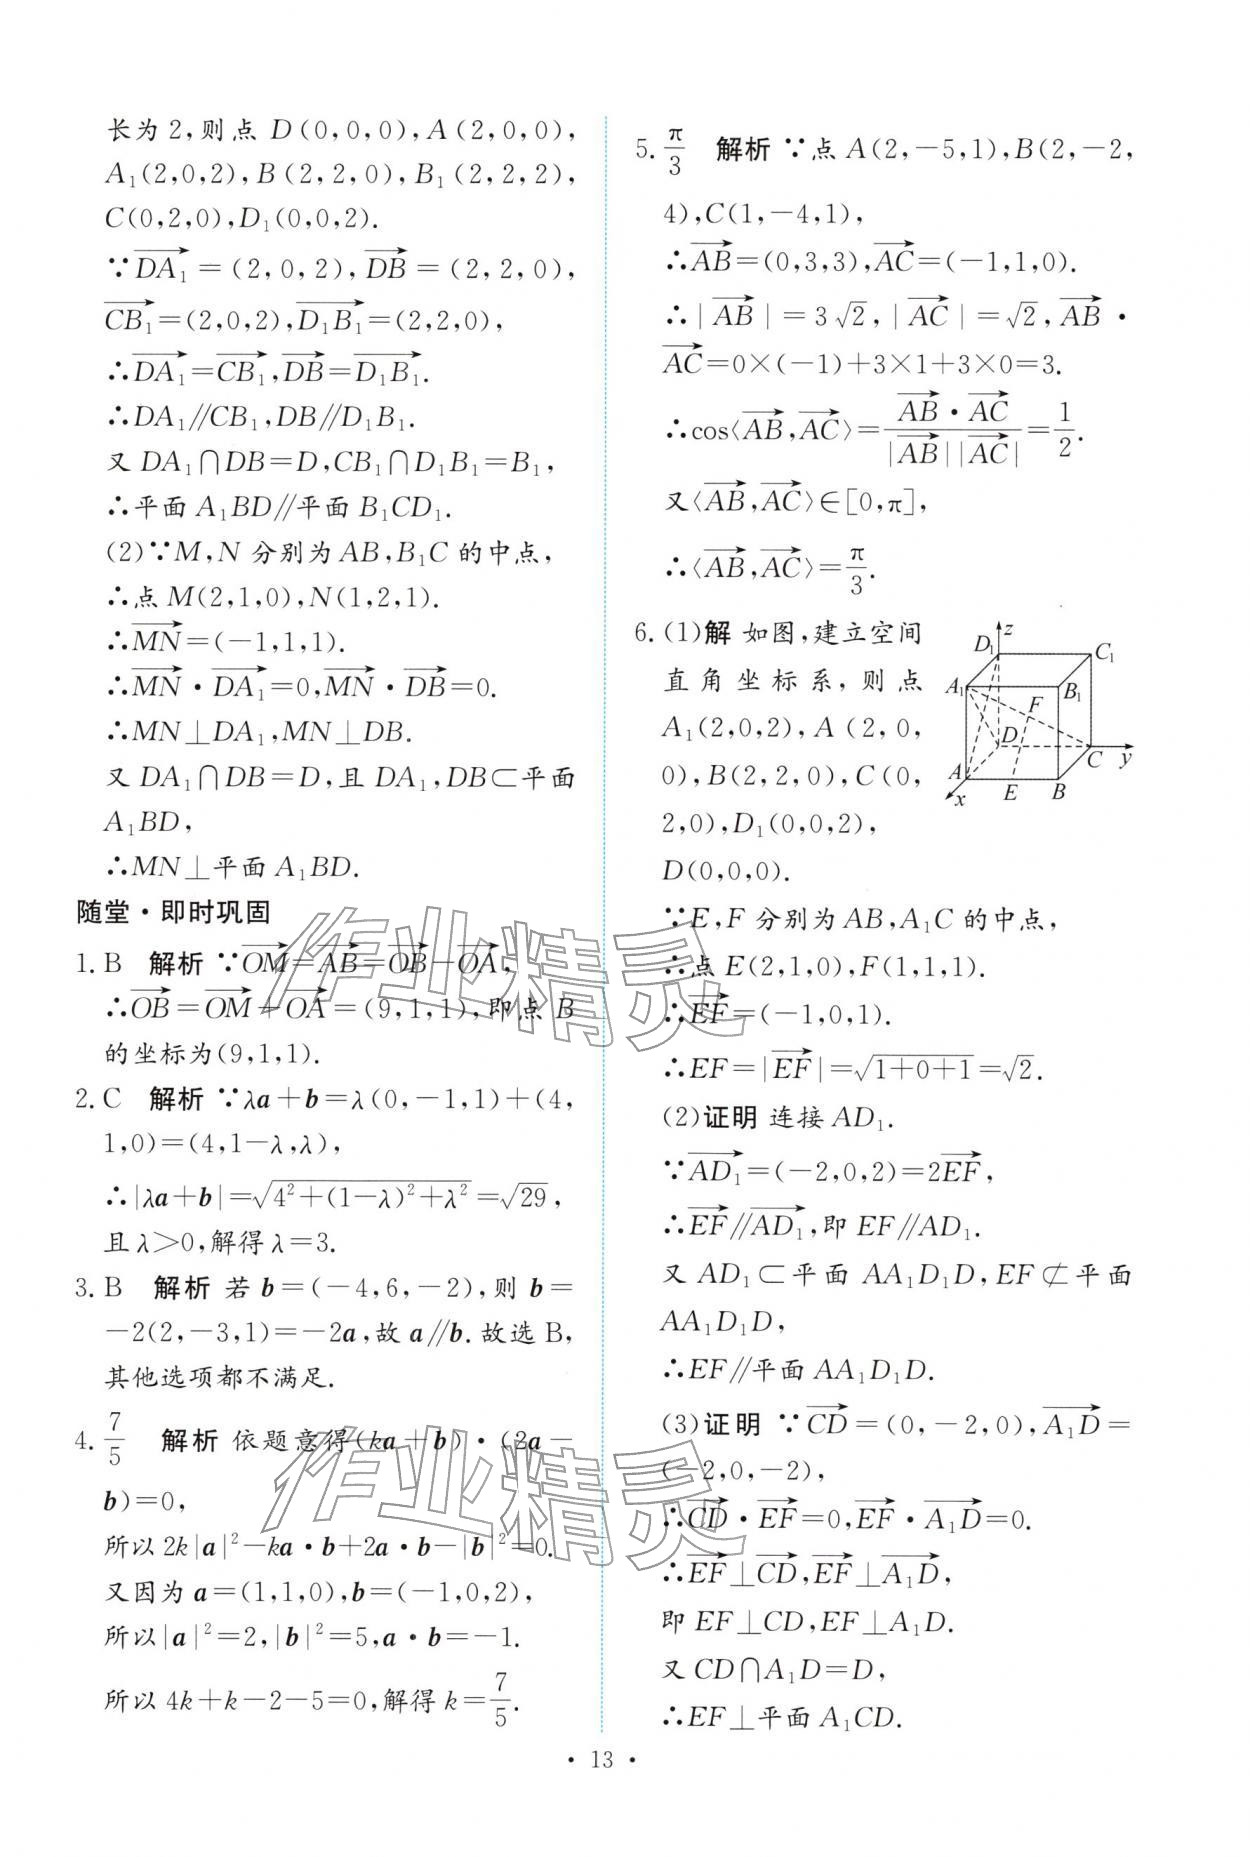 长为2,则点 D(0,0,0),A(2,0,0),
A₁(2,0,2),B(2,2,0),B₁(2,2,2),
C(0,2,0),D₁(0,0,2).
∵$\overrightarrow{DA_1}$=(2,0,2),$\overrightarrow{DB}$=(2,2,0),
$\overrightarrow{CB_1}$=(2,0,2),$\overrightarrow{D_1B_1}$=(2,2,0),
∴$\overrightarrow{DA_1}$=$\overrightarrow{CB_1}$,$\overrightarrow{DB}$=$\overrightarrow{D_1B_1}$.
∴DA₁∥CB₁,DB∥D₁B₁.
又 DA₁∩DB=D,CB₁∩D₁B₁=B₁,
∴平面 A₁BD∥平面 B₁CD₁.
(2)∵M,N 分别为 AB,B₁C 的中点,
∴点 M(2,1,0),N(1,2,1).
∴$\overrightarrow{MN}$=(-1,1,1).
∴$\overrightarrow{MN}$·$\overrightarrow{DA_1}$=0,$\overrightarrow{MN}$·$\overrightarrow{DB}$=0.
∴MN⊥DA₁,MN⊥DB.
又 DA₁∩DB=D,且 DA₁,DB⊂平面
A₁BD,
∴MN⊥平面 A₁BD.
随堂·即时巩固
1. B 解析 ∵$\overrightarrow{OM}$=$\overrightarrow{AB}$=$\overrightarrow{OB}$-$\overrightarrow{OA}$,
∴$\overrightarrow{OB}$=$\overrightarrow{OM}$+$\overrightarrow{OA}$=(9,1,1),即点 B
的坐标为(9,1,1).
2. C 解析 ∵λa+b=λ(0,-1,1)+(4,
1,0)=(4,1-λ,λ),
∴|λa+b|=$\sqrt{4^2+(1-λ)^2+λ^2}$=$\sqrt{29}$,
且 λ>0,解得 λ=3.
3. B 解析 若 b=(-4,6,-2),则 b=
-2(2,-3,1)=-2a,故 a∥b.故选 B,
其他选项都不满足.
4. $\frac{7}{5}$ 解析 依题意得(ka+b)·(2a-
b)=0,
所以 2k|a|²-ka·b+2a·b-|b|²=0.
又因为 a=(1,1,0),b=(-1,0,2),
所以|a|²=2,|b|²=5,a·b=-1.
所以 4k+k-2-5=0,解得 k=$\frac{7}{5}$.
5. $\frac{π}{3}$ 解析 ∵点 A(2,-5,1),B(2,-2,
4),C(1,-4,1),
∴$\overrightarrow{AB}$=(0,3,3),$\overrightarrow{AC}$=(-1,1,0).
∴|$\overrightarrow{AB}$|=3$\sqrt{2}$,|$\overrightarrow{AC}$|=$\sqrt{2}$,$\overrightarrow{AB}$·
$\overrightarrow{AC}$=0×(-1)+3×1+3×0=3.
∴cos〈$\overrightarrow{AB}$,$\overrightarrow{AC}$〉=$\frac{\overrightarrow{AB}·\overrightarrow{AC}}{|\overrightarrow{AB}||\overrightarrow{AC}|}$=$\frac{1}{2}$.
又〈$\overrightarrow{AB}$,$\overrightarrow{AC}$〉∈[0,π],
∴〈$\overrightarrow{AB}$,$\overrightarrow{AC}$〉=$\frac{π}{3}$.
6. (1)解 如图,建立空间
直角坐标系,则点
A₁(2,0,2),A(2,0,
0),B(2,2,0),C(0,
2,0),D₁(0,0,2),
D(0,0,0).
D₁ z C₁
A₁ B₁
F
D
C y
A
x E B
∵E,F 分别为 AB,A₁C 的中点,
∴点 E(2,1,0),F(1,1,1).
∴$\overrightarrow{EF}$=(-1,0,1).
∴EF=|$\overrightarrow{EF}$|=$\sqrt{1+0+1}$=$\sqrt{2}$.
(2)证明 连接 AD₁.
∵$\overrightarrow{AD_1}$=(-2,0,2)=2$\overrightarrow{EF}$,
∴$\overrightarrow{EF}$∥$\overrightarrow{AD_1}$,即 EF∥AD₁.
又 AD₁⊂平面 AA₁D₁D,EF⊄平面
AA₁D₁D,
∴EF∥平面 AA₁D₁D.
(3)证明 ∵$\overrightarrow{CD}$=(0,-2,0),$\overrightarrow{A_1D}$=
(-2,0,-2),
∴$\overrightarrow{CD}$·$\overrightarrow{EF}$=0,$\overrightarrow{EF}$·$\overrightarrow{A_1D}$=0.
∴$\overrightarrow{EF}$⊥$\overrightarrow{CD}$,$\overrightarrow{EF}$⊥$\overrightarrow{A_1D}$,
即 EF⊥CD,EF⊥A₁D.
又 CD∩A₁D=D,
∴EF⊥平面 A₁CD.
作业精灵
作业精灵
· 13 ·